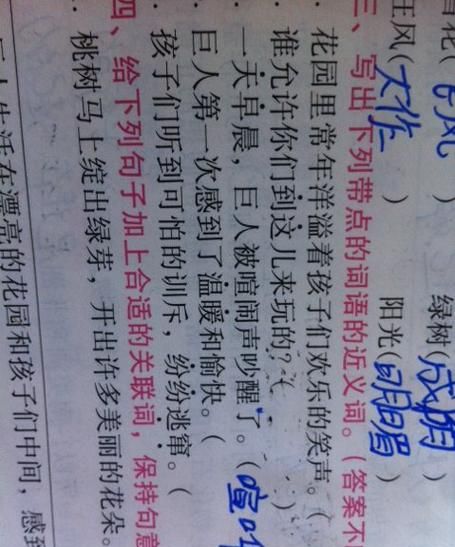 花( ) 绿树(成阴)
风(大作) 阳光(明媚)
三、写出下列带点的词语的近义词。(答案不
花园里常年洋溢着孩子们欢乐的笑声。(
谁允许你们到这儿来玩的?( )
一天早晨，巨人被喧闹声吵醒了。(喧
巨人第一次感到了温暖和愉快。(
孩子们听到可怕的训斥，纷纷逃窜。(
四、给下列句子加上合适的关联词，保持句意
桃树马上绽出绿芽，开出许多美丽的花朵。
人生活在漂亮的花园和孩子们中间，感到